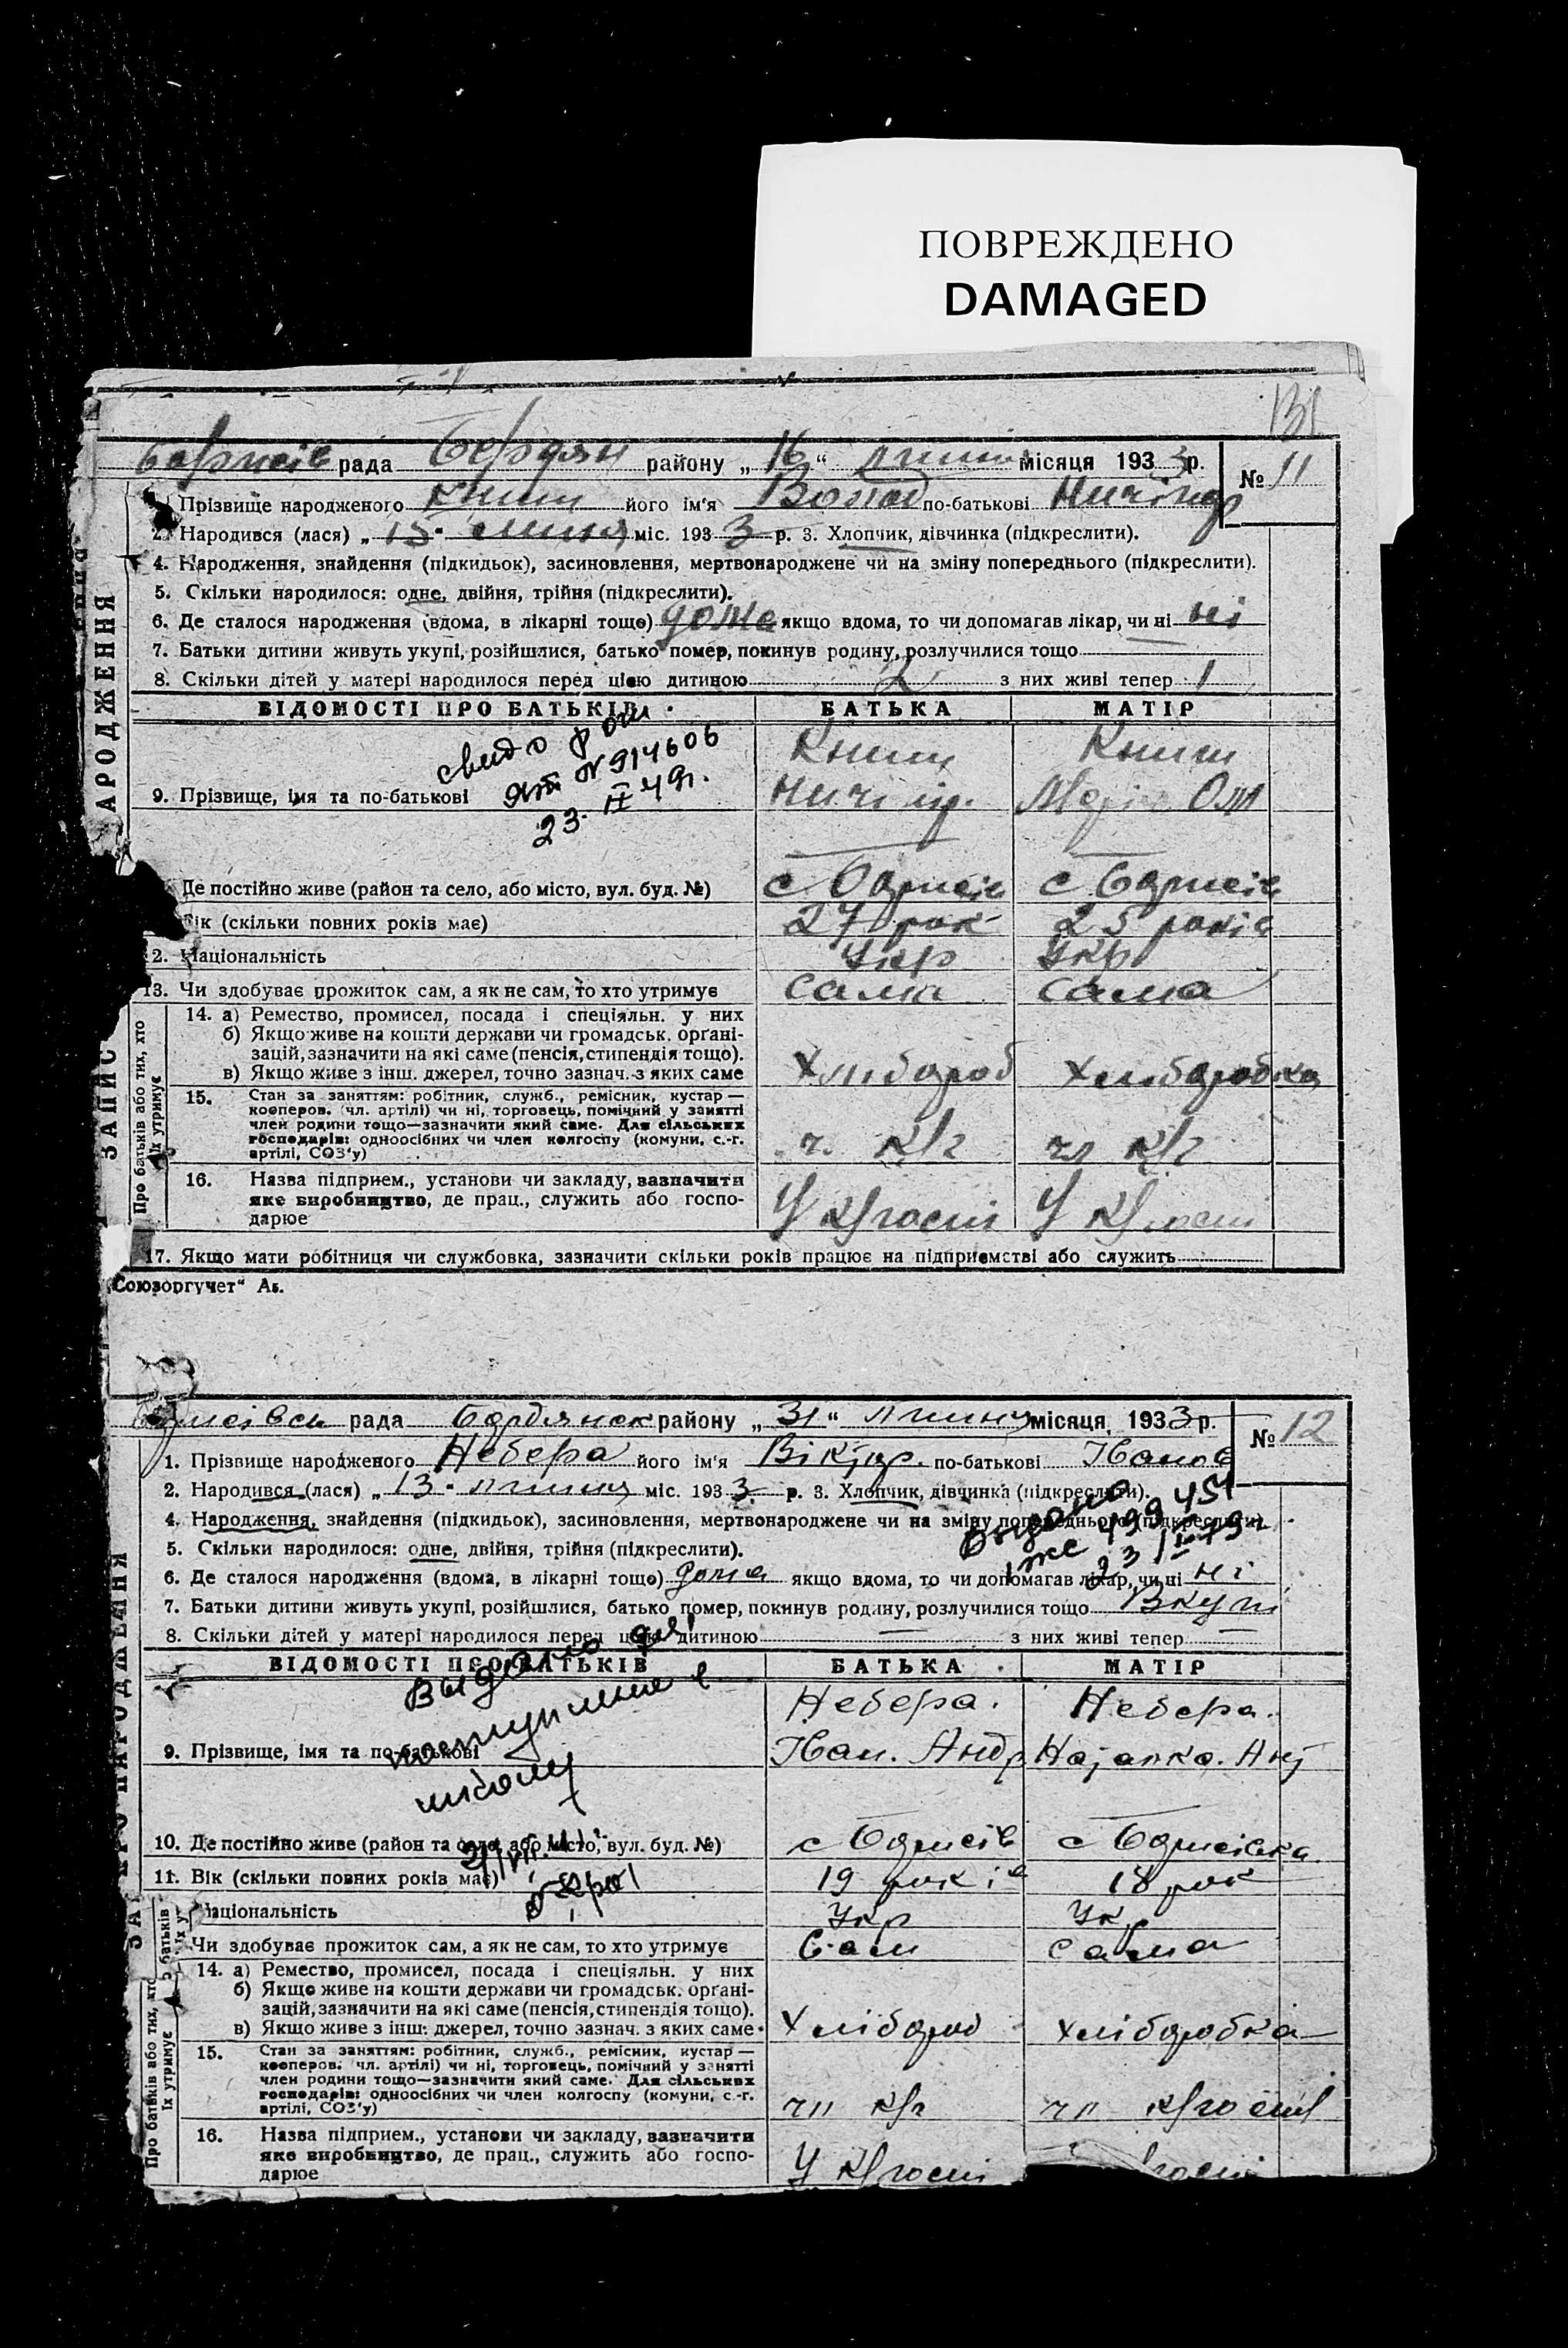 ПОВРЕЖДЕНО
DAMAGED
131
Борисів рада Бердян району „ 16 “ липня місяця 1933 р. № 11
Прізвище народженого Книш його ім'я Волод по-батькові Ничипор
2. Народився (лася) „ 15 “ липня міс. 1933 р. 3. Хлопчик, дівчинка (підкреслити).
4. Народження, знайдення (підкидьок), засиновлення, мертвонароджене чи на зміну попереднього (підкреслити).
5. Скільки народилося: одне, двійня, трійня (підкреслити).
6. Де сталося народження (вдома, в лікарні тощо) дома якщо вдома, то чи допомагав лікар, чи ні ні
7. Батьки дитини живуть укупі, розійшлися, батько помер, покинув родину, розлучилися тощо
8. Скільки дітей у матері народилося перед цією дитиною 2 з них живі тепер 1
ВІДОМОСТІ ПРО БАТЬКІВ БАТЬКА МАТІР
№ 914606
23. II 49г.
Книш Книш
9. Прізвище, імя та по-батькові Ничипр. Марія
Де постійно живе (район та село, або місто, вул. буд. №) с Борисів с Борисів
Вік (скільки повних років має) 27 рок 25 років
2. Національність Укр Укр
13. Чи здобуває прожиток сам, а як не сам, то хто утримує сама сама
14. а) Ремество, промисел, посада і спеціяльн. у них
б) Якщо живе на кошти держави чи громадськ. органі-
зацій, зазначити на які саме (пенсія, стипендія тощо).
в) Якщо живе з інш. джерел, точно зазнач. з яких саме Хлібороб Хліборобка
15. Стан за заняттям: робітник, служб., ремісник, кустар —
кооперов. (чл. артілі) чи ні, торговець, помічний у занятті
член родини тощо—зазначити який саме. Для сільських
господарів: одноосібних чи член колгоспу (комуни, с.-г.
артілі, СОЗ'у) ч. к/г чл к/г
16. Назва підприєм., установи чи закладу, зазначити
яке виробництво, де прац., служить або госпо-
дарює У к/госпі У к/госпі
17. Якщо мати робітниця чи службовка, зазначити скільки років працює на підприємстві або служить
АРОДЖЕННЯ
ЗАПИС
Про батьків або тих, хто
їх утримує
Союзоргучет“ Ав.
Борисівсь рада Бердянск району „ 31 “ липня місяця 1933 р. № 12
1. Прізвище народженого Небера його ім'я Віктор. по-батькові Іванов
2. Народився (лася) „ 13 “ липня міс. 1933 р. 3. Хлопчик, дівчинка (підкреслити).
4. Народження, знайдення (підкидьок), засиновлення, мертвонароджене чи на зміну попереднього (підкреслити).
5. Скільки народилося: одне, двійня, трійня (підкреслити).
6. Де сталося народження (вдома, в лікарні тощо) дома якщо вдома, то чи допомагав лікар, чи ні ні
7. Батьки дитини живуть укупі, розійшлися, батько помер, покинув родину, розлучилися тощо Вкупі
8. Скільки дітей у матері народилося перед цією дитиною — з них живі тепер —
ВІДОМОСТІ ПРО БАТЬКІВ БАТЬКА МАТІР
Выдано для
поступления в
школу
Небера. Небера.
9. Прізвище, імя та по-батькові Іван. Андр
10. Де постійно живе (район та село, або місто, вул. буд. №) с Борисів с Борисівка
11. Вік (скільки повних років має) 19 років 18 рок
Національність Укр Укр
Чи здобуває прожиток сам, а як не сам, то хто утримує Сам сама
14. а) Ремество, промисел, посада і спеціяльн. у них
б) Якщо живе на кошти держави чи громадськ. органі-
зацій, зазначити на які саме (пенсія, стипендія тощо).
в) Якщо живе з інш. джерел, точно зазнач. з яких саме Хлібороб хліборобка
15. Стан за заняттям: робітник, служб., ремісник, кустар —
кооперов. (чл. артілі) чи ні, торговець, помічний у занятті
член родини тощо—зазначити який саме. Для сільських
господарів: одноосібних чи член колгоспу (комуни, с.-г.
артілі, СОЗ'у) чл к/г чл к/госпі
16. Назва підприєм., установи чи закладу, зазначити
яке виробництво, де прац., служить або госпо-
дарює У к/госпі госпі
Про батьків або тих, хто
їх утримує